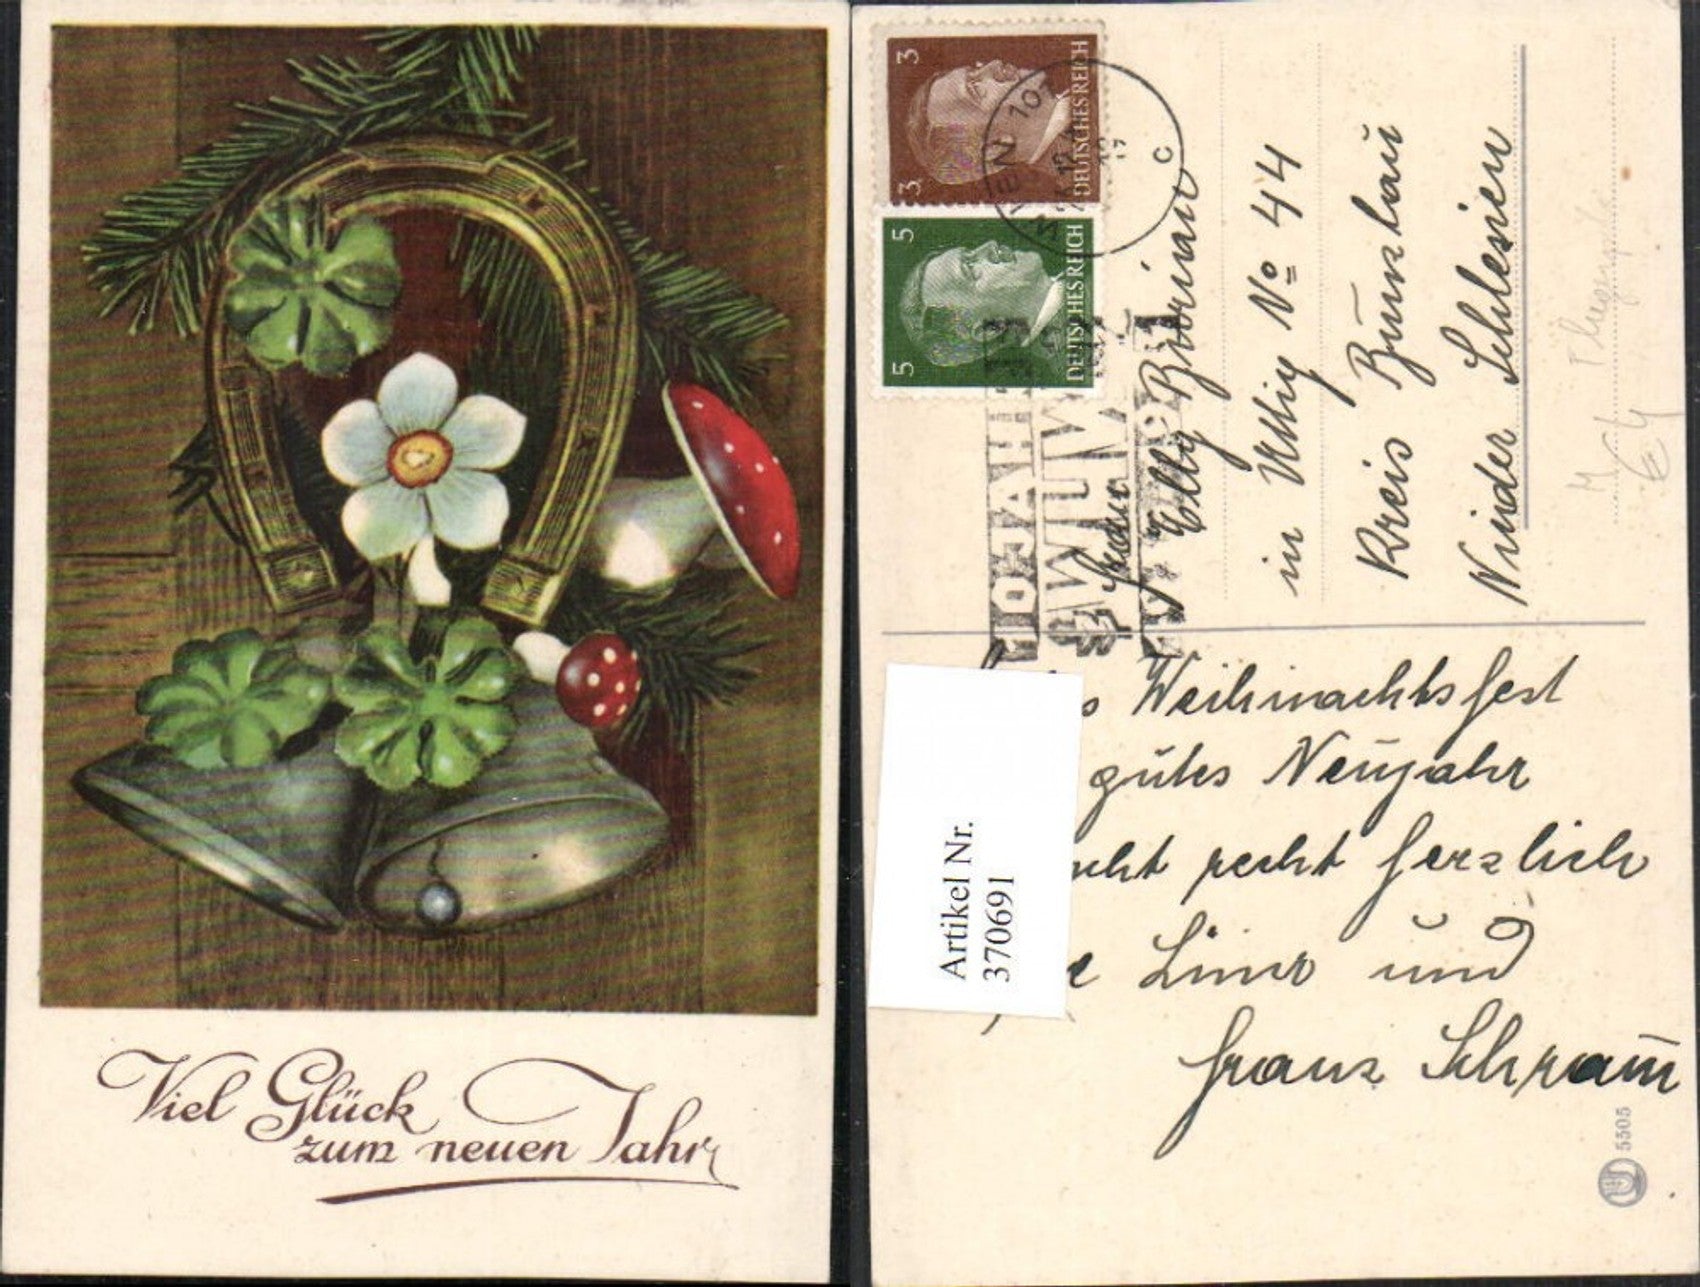 Viel Glück
zum neuen Jahr
3 3
DEUTSCHES REICH
5 5
DEUTSCHES REICH
WIEN 101
c
Elly
in Uttig No 44
Kreis Bunzlau
Nieder Schlesien
Weihnachtsfest
gutes Neujahr
recht herzlich
und
Franz Schramm
Artikel Nr.
370691
5505